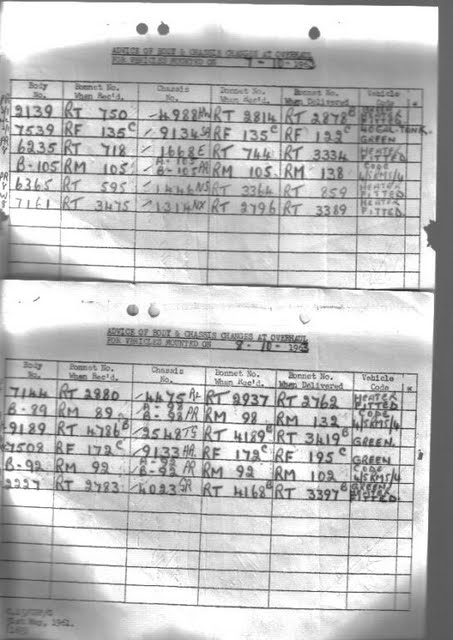 ADVICE OF BODY & CHASSIS CHANGES AT OVERHAUL
FOR VEHICLES MOUNTED ON 7 - 10 - 1963
Body No. Bonnet No. When Rec'd. Chassis No. Bonnet No. When Rec'd. Bonnet No. When Delivered Vehicle Code *
2139 RT 750 4988 RT 2814 RT 2878
7539 RF 135 C 9134 SA RF 135 C RF 122 C 40 GAL. TANK. GREEN
6235 RT 718 1668 E RT 744 RT 3334 HEATER FITTED
B-105 RM 105 A-105 B-105 AR RM 105 RM 138 CODE 4/5RM5/4
6365 RT 595 1446 NS RT 3364 RT 859 HEATER FITTED
7161 RT 3475 1314 NX RT 2796 RT 3389 HEATER FITTED
ADVICE OF BODY & CHASSIS CHANGES AT OVERHAUL
FOR VEHICLES MOUNTED ON 8 - 10 - 1963
Body No. Bonnet No. When Rec'd. Chassis No. Bonnet No. When Rec'd. Bonnet No. When Delivered Vehicle Code *
7144 RT 2980 4475 RT 2937 RT 2762 HEATER FITTED
B-89 RM 89 A-98 B-98 AR RM 98 RM 132 CODE 4/5RM5/4
9189 RT 4786 B 2548 TS RT 4189 B RT 3419 B GREEN
7508 RF 172 C 9133 AR RF 172 C RF 195 C GREEN
B-92 RM 92 A-92 B-92 AR RM 92 RM 102 CODE 4/5RM5/4
2227 RT 2783 4023 GR RT 4168 B RT 3397 B GREEN FITTED
31st May, 1962.